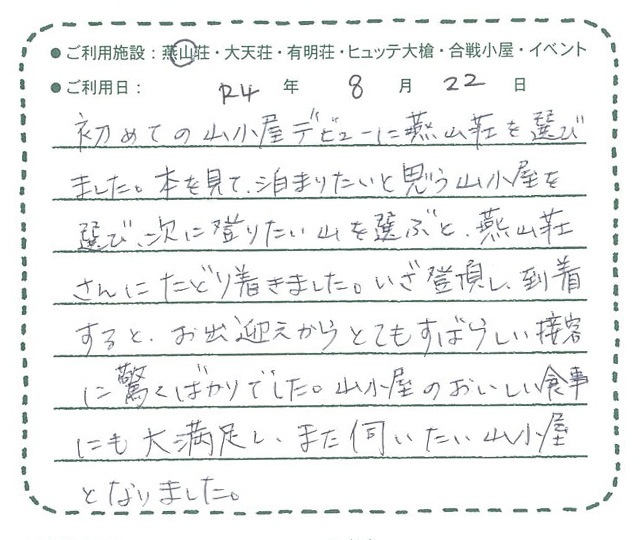 ●ご利用施設：燕山荘・大天荘・有明荘・ヒュッテ大槍・合戦小屋・イベント
●ご利用日： R4 年 8 月 22 日
初めての山小屋デビューに燕山荘を選び
ました。本を見て、泊まりたいと思う山小屋を
選び、次に登りたい山を選ぶと、燕山荘
さんにたどり着きました。いざ登頂し、到着
すると、お出迎えからとてもすばらしい接客
に驚くばかりでした。山小屋のおいしい食事
にも大満足し、また伺いたい山小屋
となりました。